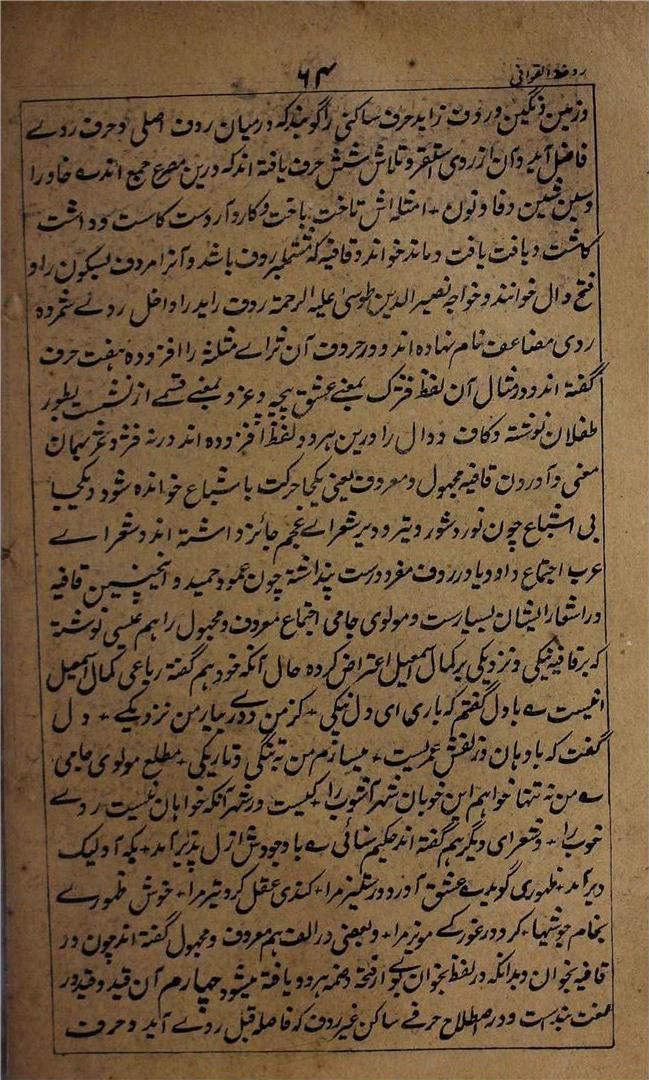 روضة القوافی
۶۴
وزمین و نگین و ردف زاید حرف ساکنی را گویند که درمیان ردف اصلی و حرف روے
فاضل آید و آن از روی استقرا و تلاش شش حرف یافته اند که درین مصرع جمع اندے خا و را
وسین شین و فا و نون + امثله اش تاخت باخت و کارد آرد ست کاست و داشت
کاشت و بافت یافت و ماند خواند و قافیه که مشتمل بر ردف باشد و آنرا مردف بسکون را و
فتح دال خوانند و خواجه نصیر الدین طوسی علیه الرحمة ردف زاید را داخل روے شمرده
روی مضاعف نام نهاده اند و در حروف آن ثرا ے مثلثه را افزوده هفت حرف
گفته اند و در مثال آن لفظ فترک بمعنے عشق پیچه و غزد بمعنے قسمے از نشست بطور
طفلان نوشته و کاف و دال را درین هر دو لفظ افزوده اند ورنه فژ و غژ بهمان
معنی و آوردن قافیه مجهول و معروف یعنی یکجا حرکت باشباع خوانده شود و یکجا
بی اشباع چون نور و شور و تیر و دیر شعراے عجم جائز داشته اند و شعرا ے
عرب اجتماع واو و یا در ردف مفرد درست پنداشته چون عمود حمید و اینچنین قافیه
در اشعار ایشان بسیارست و مولوی جامی اجتماع معروف و مجهول را هم عیبی نوشته
که بر قافیه نیکی و نزدیکی بر کمال اسمعیل اعتراض کرده حال آنکه خود هم گفته رباعی کمال اسمعیل
اینست ے با دل گفتم که باری ای دل نیکی + کز من دوری و بیار من نزدیکے + دل
گفت که با دهان و زلفش عمریست + میسازم من به تنگی و تاریکی + مطلع مولوی جامی
ے من نه تنها خواهم این خوبان شهر آشوب را + کیست در شهر آنکه خواهان نیست روے
خوب را + و شعرای دیگر هم گفته اند حکیم سنائی ے با وجودش ازل پذیر آمد + بگه آمد لیک
دیر آمد + ظهوری گوید ے عشق آورد در ستیز مرا + کندی عقل کرد تیز مرا + خوش ظهورے
بخام جوشیها + کرد در غورگے مویز مرا + و بعضی در الف هم معروف و مجهول گفته اند چون در
قافیه بخوان و بدانکه در لفظ بخوان بوے از فتحه و ضمه هر دو یافته میشود چهارم آن قید و قید در
لغت بندست و در اصطلاح حرفے ساکن غیر ردف که فاصله قبل روے آید و حرف